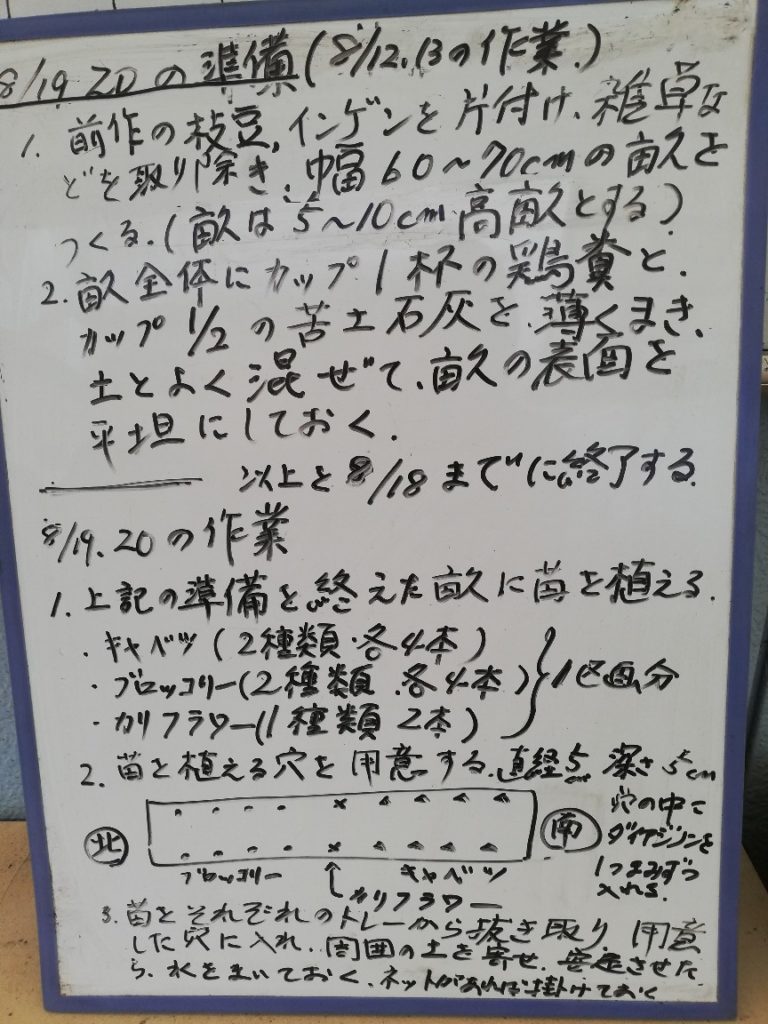 8/19 20の準備(8/12.13の作業.)
1. 前作の枝豆,インゲンを片付け、雑草な
どを取り除き、幅60~70cmの畝を
つくる.(畝は5~10cm高畝とする)
2. 畝全体にカップ1杯の鶏糞と、
カップ1/2の苦土石灰を、薄くまき、
土とよく混ぜて、畝の表面を
平坦にしておく.
以上を8/18までに終了する.
8/19.20の作業
1. 上記の準備を終えた畝に苗を植える.
・キャベツ(2種類・各4本)
・ブロッコリー(2種類.各4本) 1区画分
・カリフラワー(1種類2本)
2. 苗を植える穴を用意する.直径5cm 深さ5cm
穴の中に
ダイアジノンを
1つまみずつ
入れる.
北 南
ブロッコリー キャベツ
カリフラワー
3. 苗をそれぞれのトレーから抜き取り、用意
した穴に入れ、周囲の土を寄せ、安定させた
ら、水をまいておく、ネットがあれば掛けておく